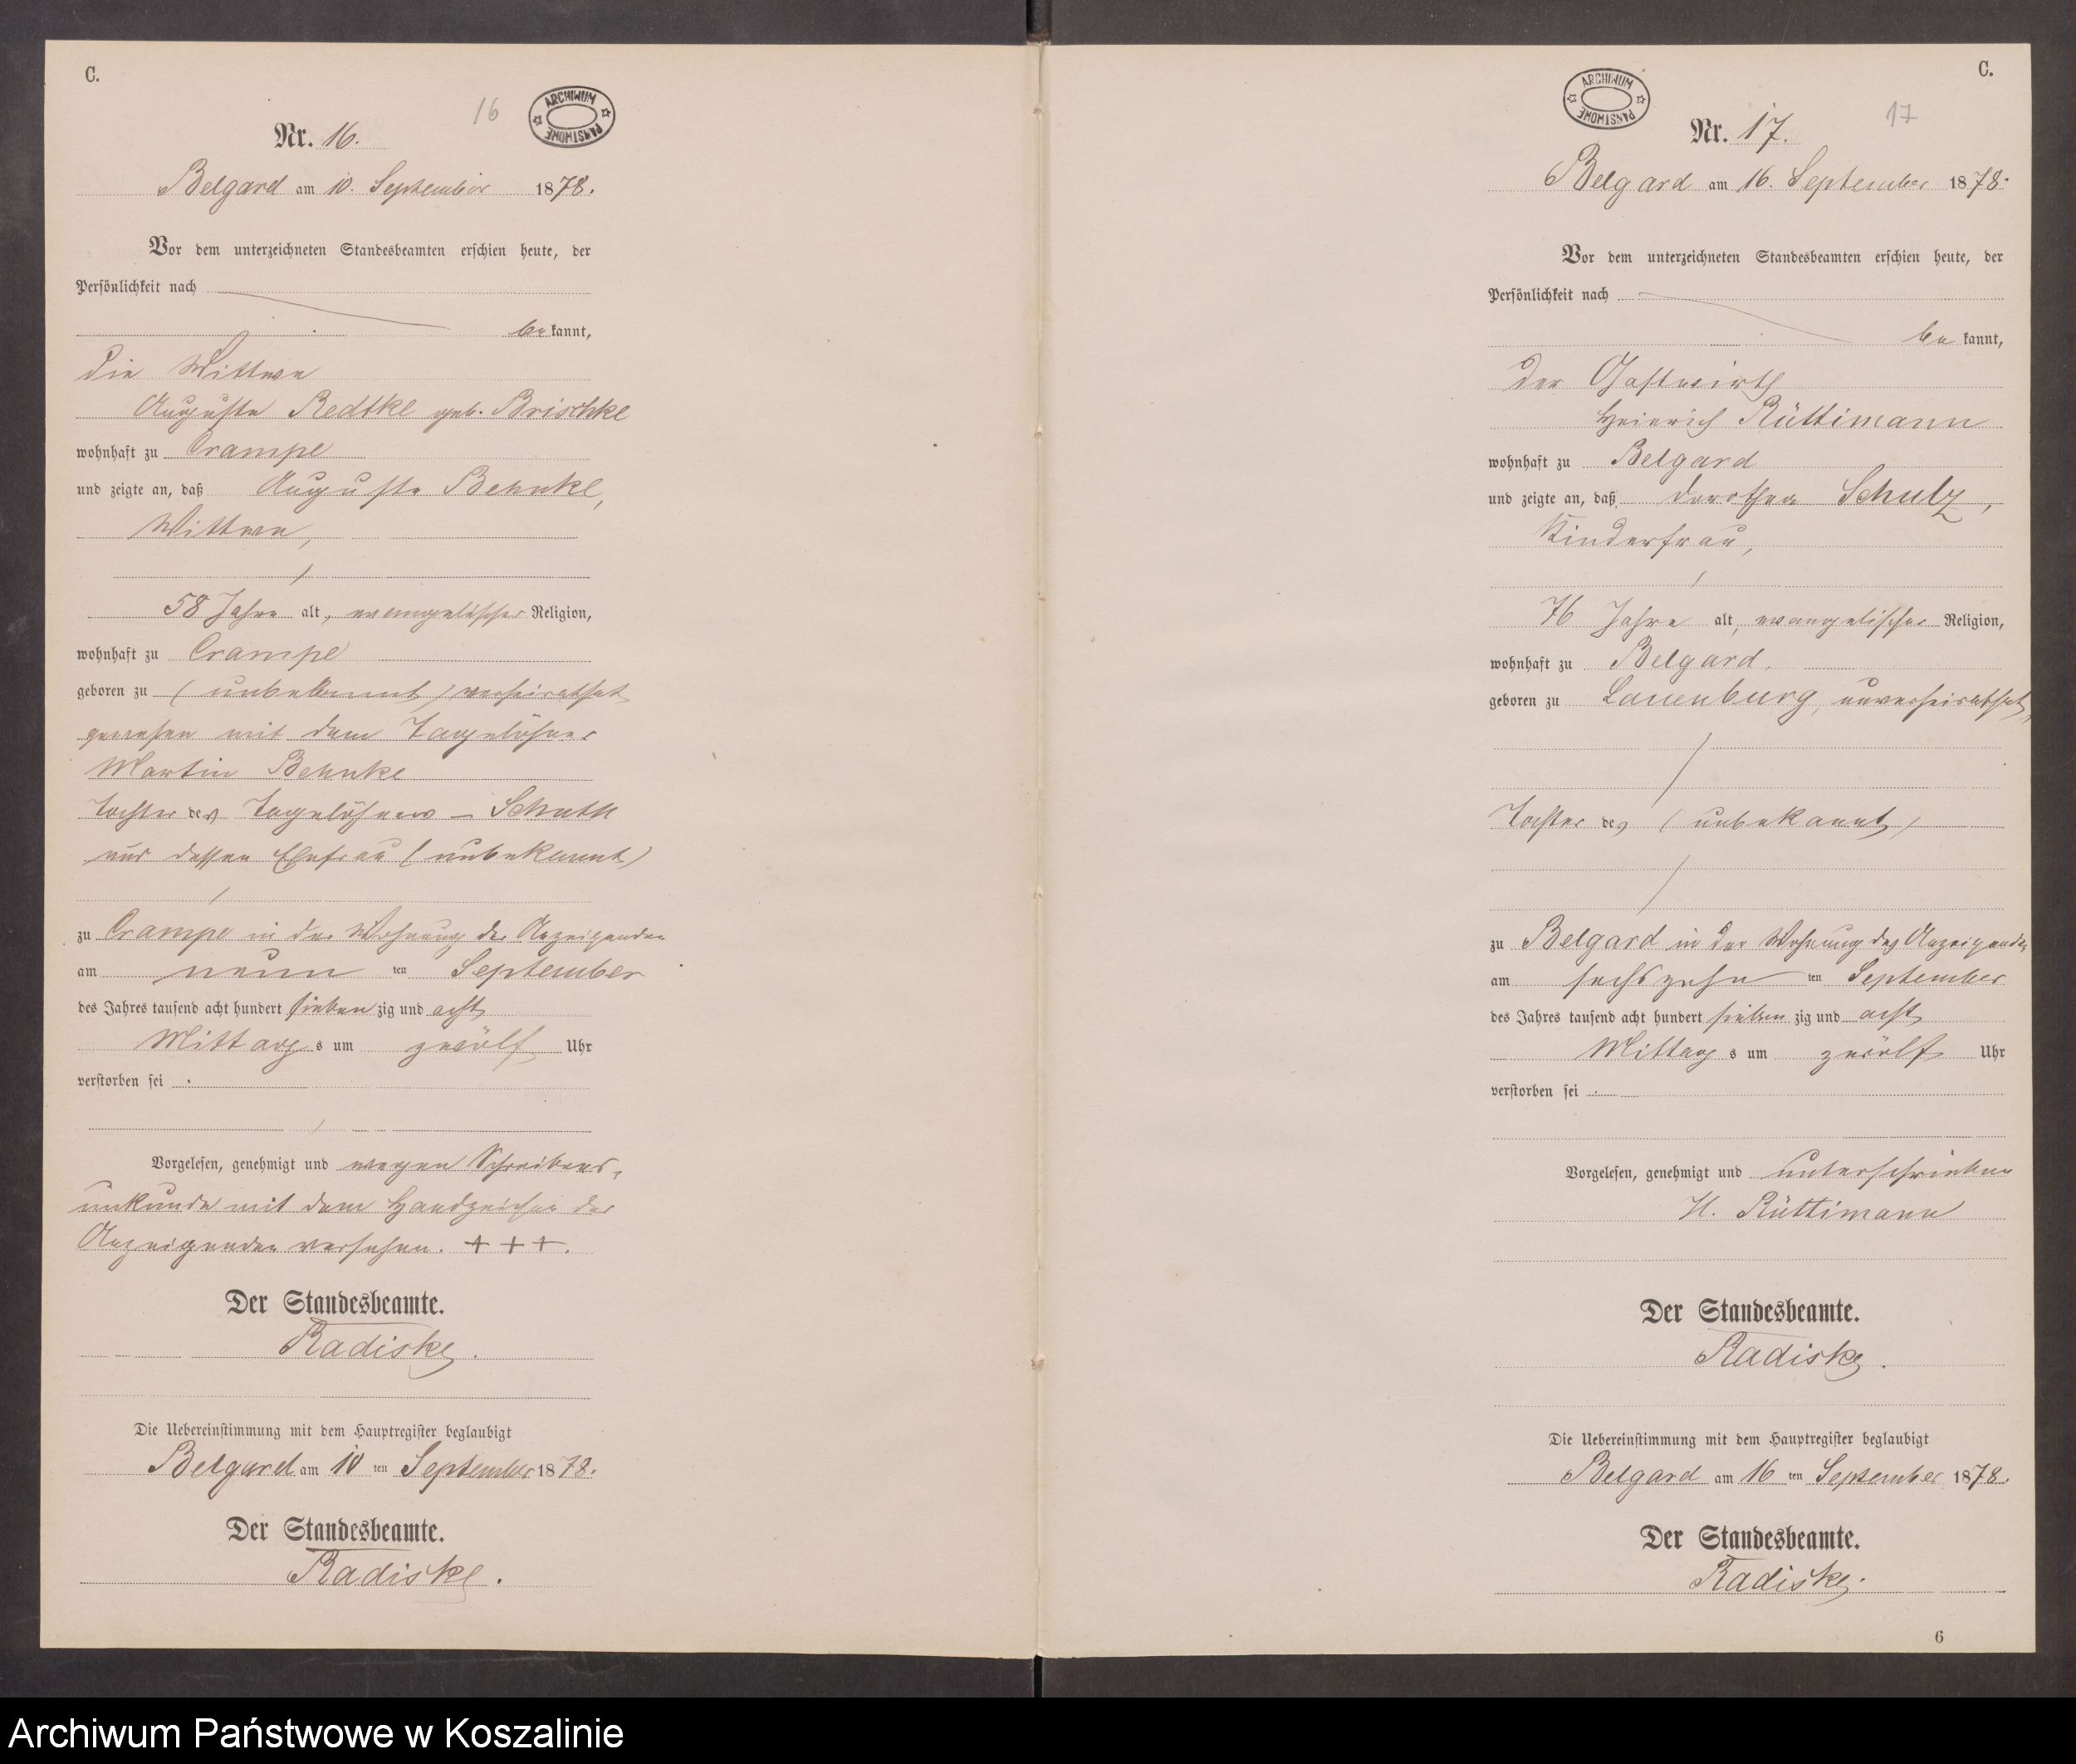 C.
16
ARCHIWUM PAŃSTWOWE
Nr. 16.
Belgard am 10. September 1878.
Vor dem unterzeichneten Standesbeamten erschien heute, der
Persönlichkeit nach
bekannt,
die Wittwe
Auguste Redtke geb. Brischke
wohnhaft zu Crampe
und zeigte an, daß Auguste Behnke,
Wittwe,
58 Jahre alt, evangelischer Religion,
wohnhaft zu Crampe
geboren zu (unbekannt) verheirathet
gewesen mit dem Tagelöhner
Martin Behnke
Tochter des Tagelöhners –
und dessen Ehefrau (unbekannt)
zu Crampe in der Wohnung der Anzeigenden
am neun ten September
des Jahres tausend acht hundert siebenzig und acht
Mittags um zwölf Uhr
verstorben sei
Vorgelesen, genehmigt und wegen Schreibens-
unkunde mit dem Handzeichen der
Anzeigenden versehen. + + +.
Der Standesbeamte.
Radiske.
Die Uebereinstimmung mit dem Hauptregister beglaubigt
Belgard am 10 ten September 1878.
Der Standesbeamte.
Radiske.
C.
17
ARCHIWUM PAŃSTWOWE
Nr. 17.
Belgard am 16. September 1878.
Vor dem unterzeichneten Standesbeamten erschien heute, der
Persönlichkeit nach
bekannt,
der Gastwirth
Heinrich Rüttimann
wohnhaft zu Belgard
und zeigte an, daß Dorothea Schulz,
Kinderfrau,
76 Jahre alt, evangelischer Religion,
wohnhaft zu Belgard.
geboren zu Lauenburg, unverheirathet,
Tochter des (unbekannt)
zu Belgard in der Wohnung des Anzeigenden
am sechszehn ten September
des Jahres tausend acht hundert siebenzig und acht
Mittags um zwölf Uhr
verstorben sei
Vorgelesen, genehmigt und unterschrieben
H. Rüttimann
Der Standesbeamte.
Radiske.
Die Uebereinstimmung mit dem Hauptregister beglaubigt
Belgard am 16 ten September 1878.
Der Standesbeamte.
Radiske.
6
Archiwum Państwowe w Koszalinie